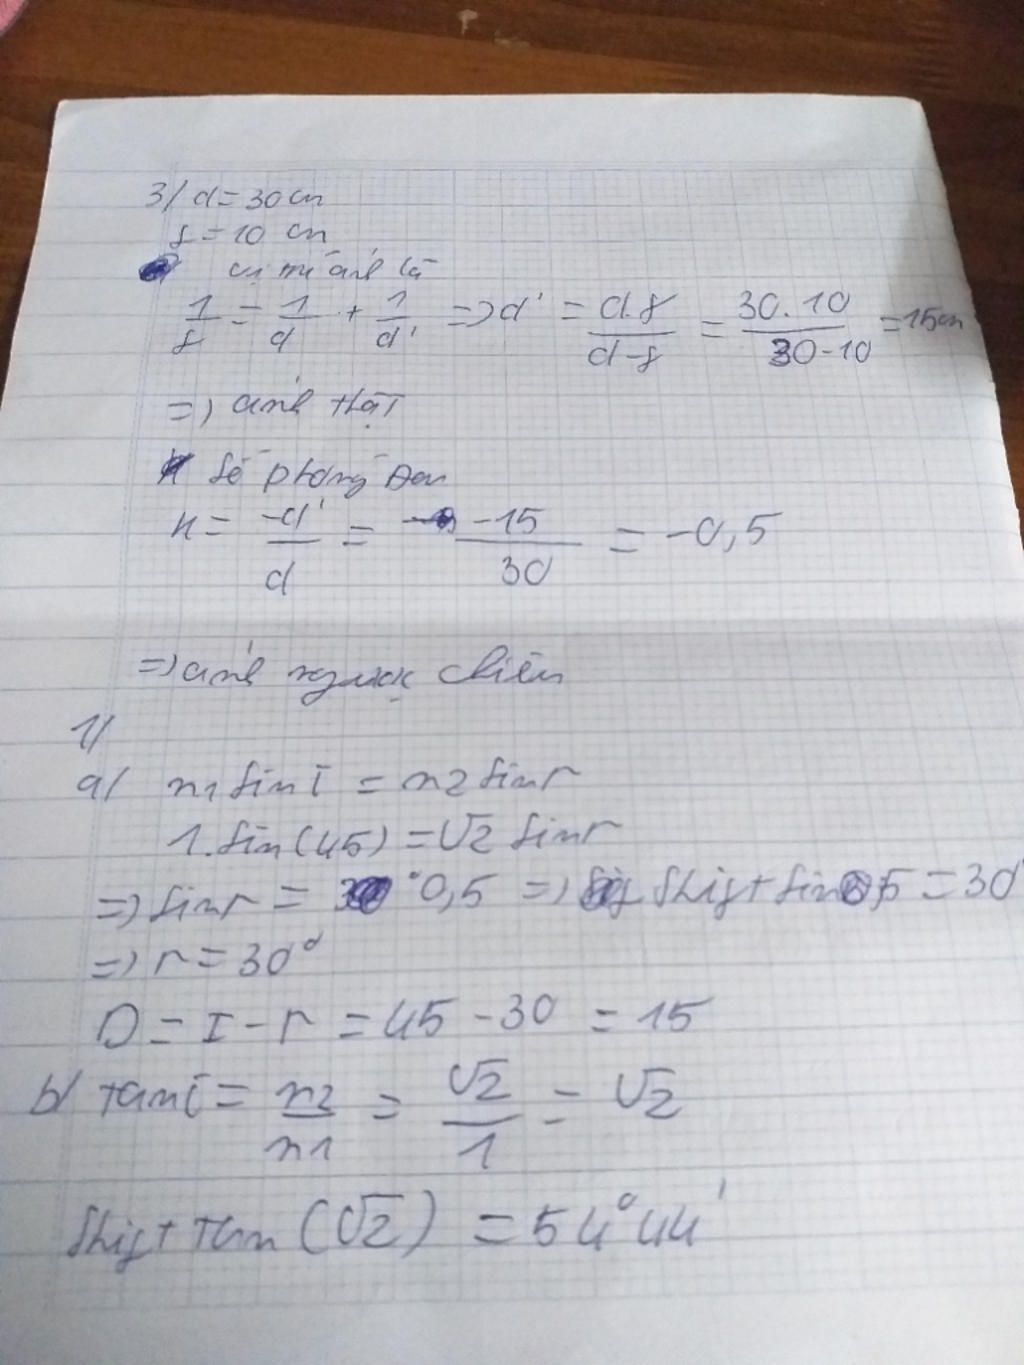 3/ d = 30 cm
f = 10 cm
vị trí ảnh là
1/f = 1/d + 1/d' => d' = d.f/d-f = 30.10/30-10 = 15cm
=> ảnh thật
số phóng đại
k = -d'/d = -15/30 = -0,5
=> ảnh ngược chiều
1/
a/ n1 sin i = n2 sin r
1. sin(45) = √2 sin r
=> sin r = 0,5 => shift sin 0,5 = 30
=> r = 30°
D = I - r = 45 - 30 = 15
b/ tan i = n2/n1 = √2/1 = √2
shift tan (√2) = 54°44'